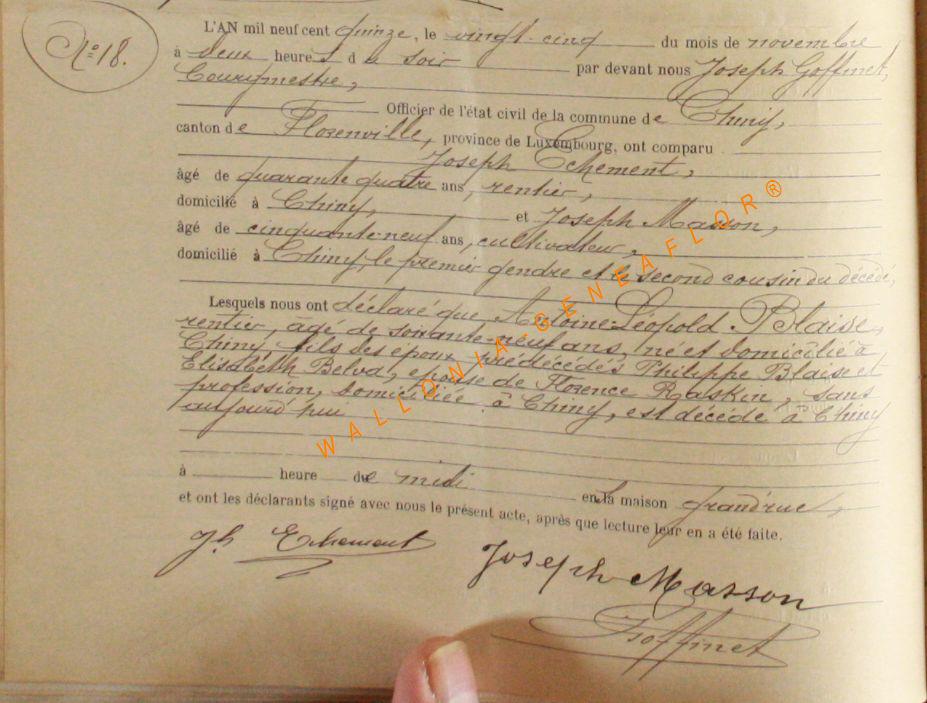 N° 18.
L'AN mil neuf cent quinze, le vingt-cinq du mois de novembre
à deux heures du soir par devant nous Joseph Goffinet,
Bourgmestre,
Officier de l'état civil de la commune de Chiny,
canton de Florenville, province de Luxembourg, ont comparu
Joseph Echement,
âgé de quarante quatre ans, rentier,
domicilié à Chiny, et Joseph Masson,
âgé de cinquante-neuf ans, cultivateur,
domicilié à Chiny, le premier gendre et le second cousin du décédé,
Lesquels nous ont déclaré que Antoine-Léopold Blaise,
rentier, âgé de soixante-neuf ans, né et domicilié à
Chiny fils des époux prédécédés Philippe Blaise et
Elisabeth Belva, epouse de Florence Raskin, sans
profession, domiciliée à Chiny, est décédé à Chiny
aujourd'hui
à heure de midi en la maison grand'rue,
et ont les déclarants signé avec nous le présent acte, après que lecture leur en a été faite.
Jh Echement
Joseph Masson
JGoffinet
WALLONIA-GENEAFLOR®